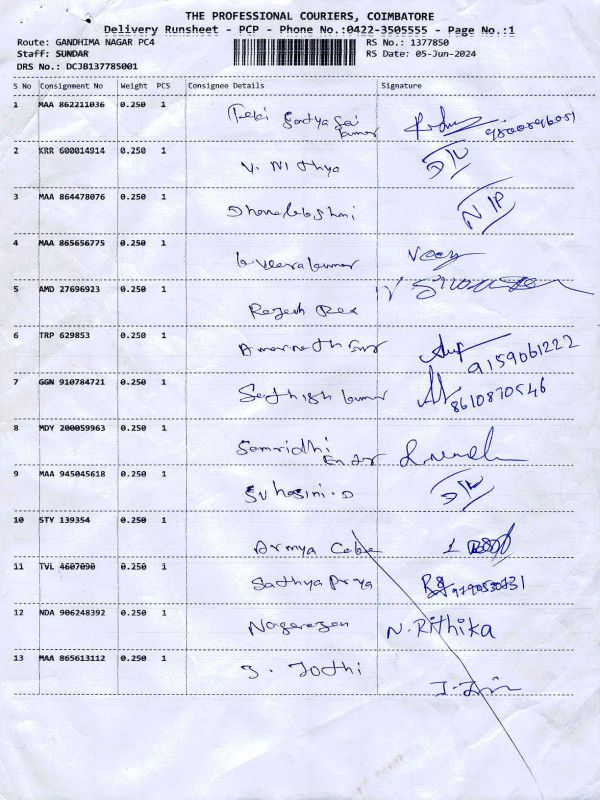 THE PROFESSIONAL COURIERS, COIMBATORE
Delivery Runsheet - PCP - Phone No.:0422-3505555 - Page No.:1
Route: GANDHIMA NAGAR PC4 RS No.: 1377850
Staff: SUNDAR RS Date: 05-Jun-2024
DRS No.: DCJB137785001
S No Consignment No Weight PCS Consignee Details Signature
1 MAA 862211036 0.250 1
Sathya Sai
kumar
2 KRR 600014914 0.250 1
V. Nithya
3 MAA 864478076 0.250 1
Dhanalakshmi
4 MAA 865656775 0.250 1
Veerakumar
5 AMD 27696923 0.250 1
Rajesh
6 TRP 629853 0.250 1
9159061222
7 GGN 910784721 0.250 1
Sathish kumar 8610870546
8 MDY 200059963 0.250 1
Samridhi
9 MAA 945045618 0.250 1
Suhasini.D
10 STY 139354 0.250 1
11 TVL 4607090 0.250 1
Sathya Priya
12 NDA 906248392 0.250 1
Nagarajan N. Rithika
13 MAA 865613112 0.250 1
J. Jothi